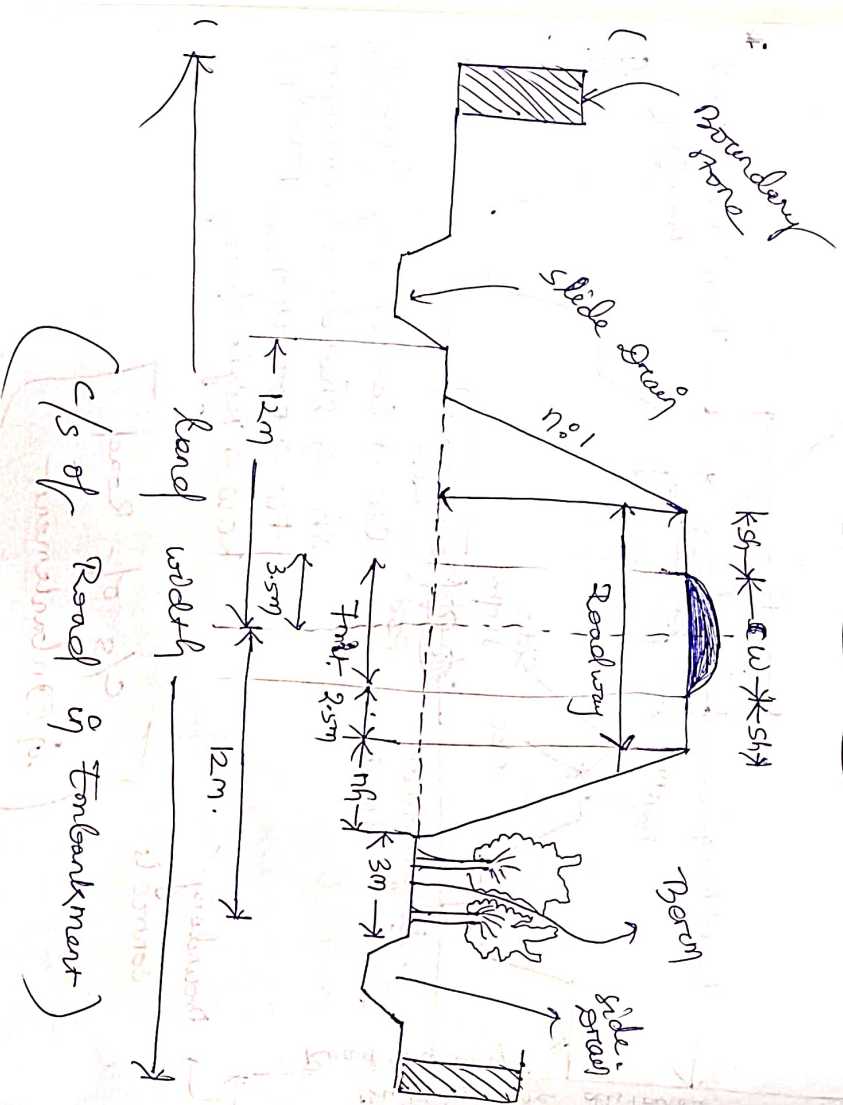 Boundary
stone
Slide Drain
n:1
ksh
CW
Sh
Roadway
Berm
side
Drain
12m
3.5m
7mt.
2.5m
nh
3m
12m.
Land width
C/s of Road in Embankment